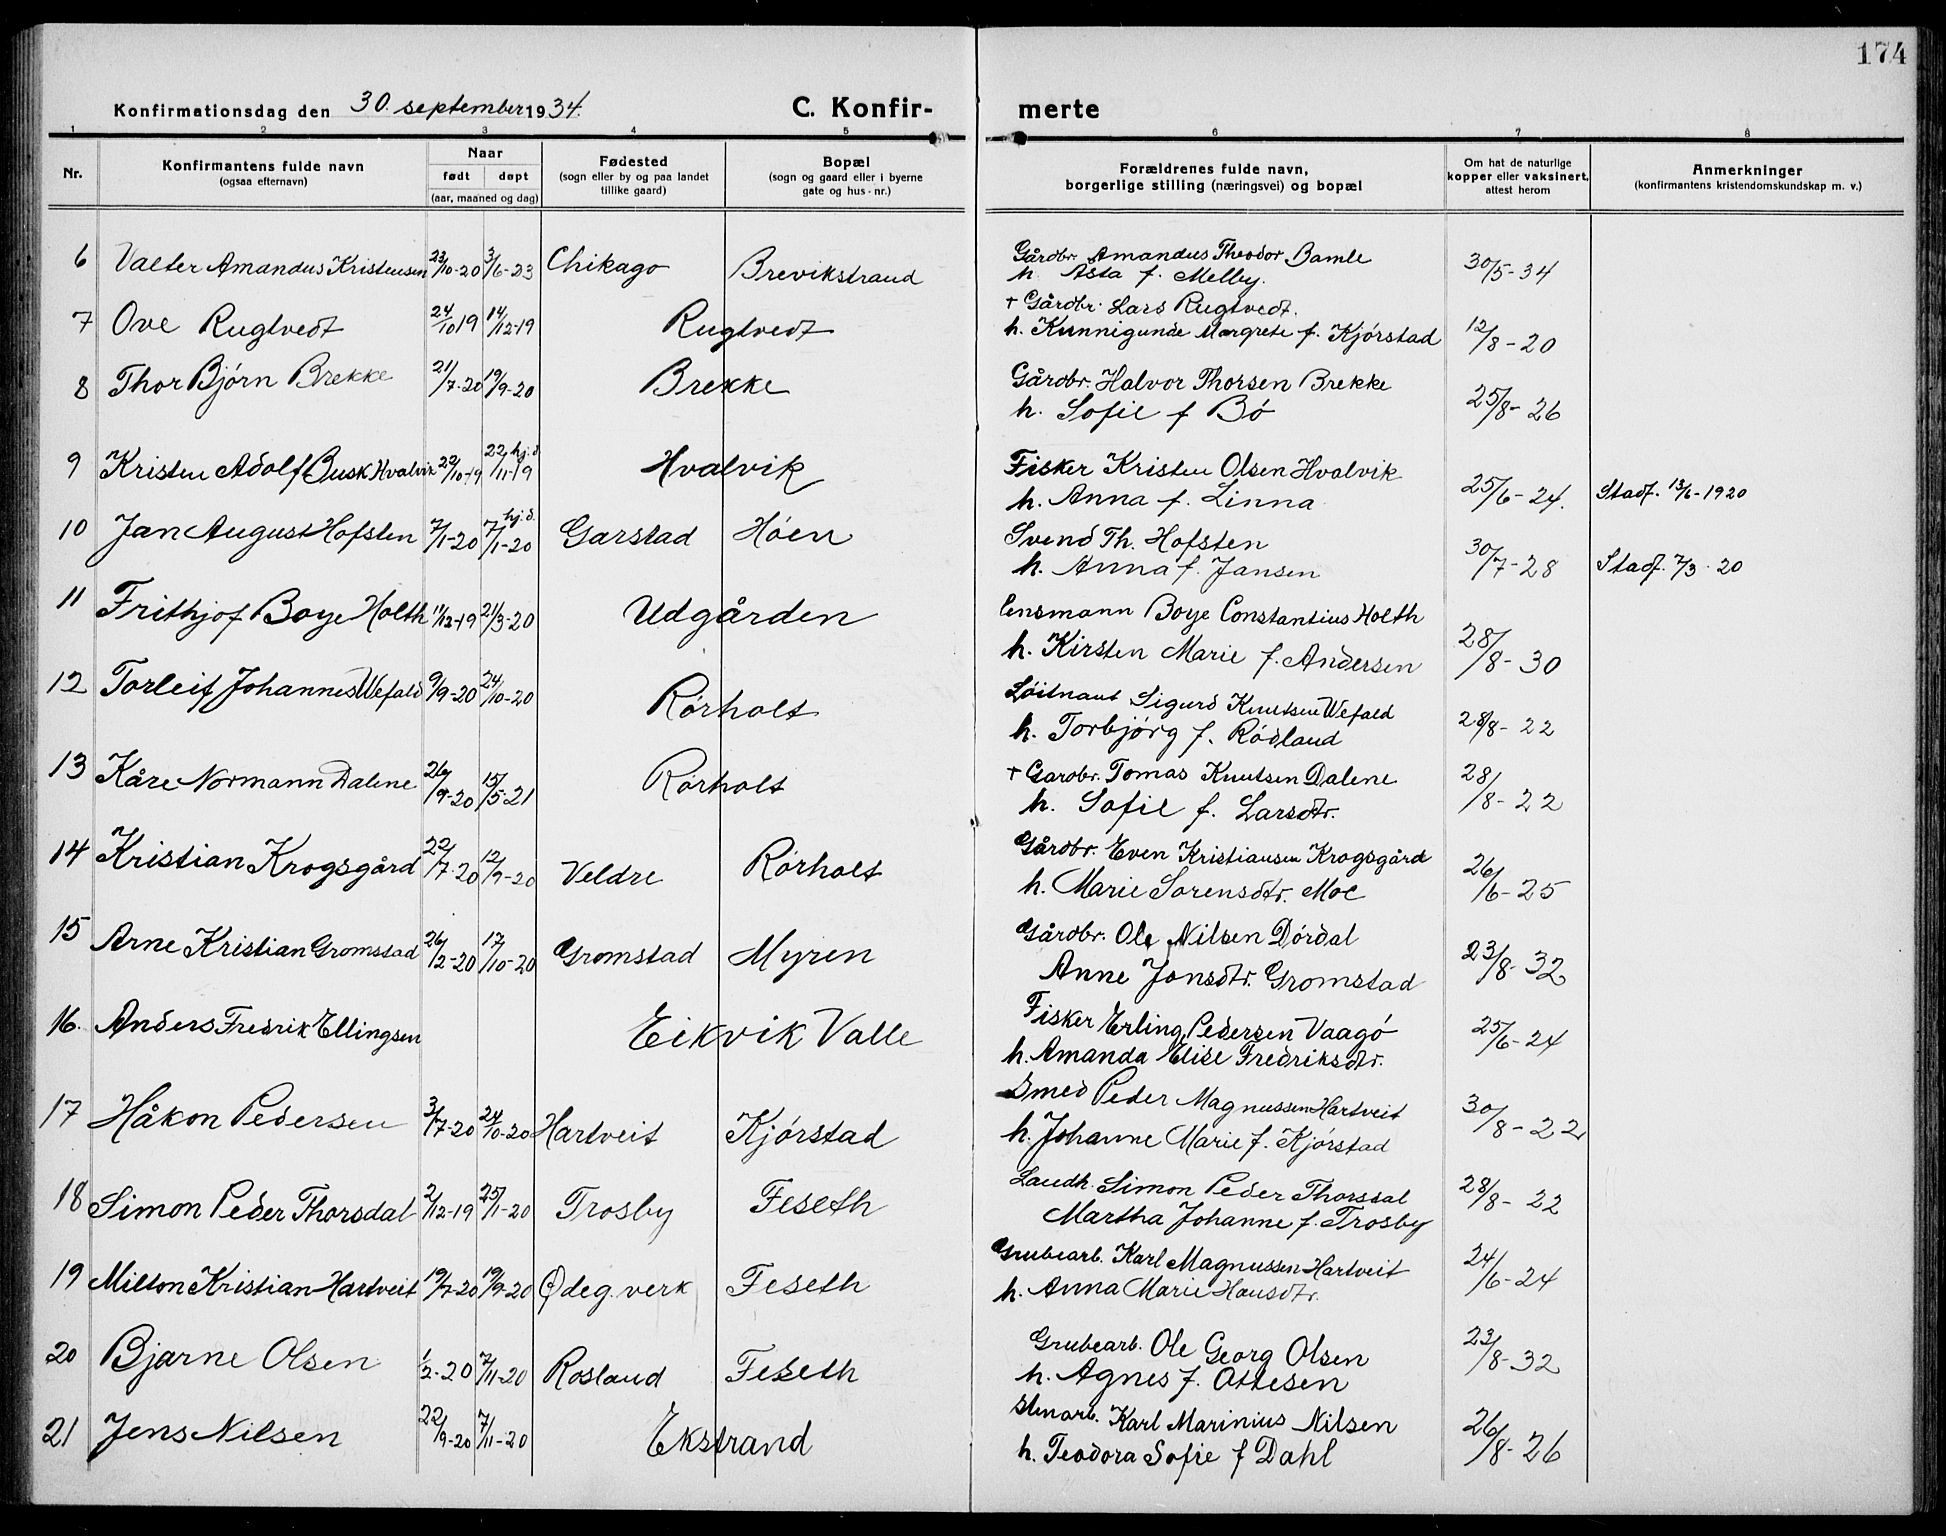 174
Konfirmationsdag den 30. september 1934. C. Konfir- merte
1 2 3 4 5 6 7 8
Nr. Konfirmantens fulde navn (ogsaa efternavn) Naar født døpt (aar, maaned og dag) Fødested (sogn eller by og paa landet tillike gaard) Bopæl (sogn og gaard eller i byerne gate og hus-nr.) Forældrenes fulde navn, borgerlige stilling (næringsvei) og bopæl Om hat de naturlige kopper eller vaksinert, attest herom Anmerkninger (konfirmantens kristendomskundskap m. v.)
6 Valter Amandus Kristensen 23/10-20 3/6-23 Chikago Brevikstrand Gårdbr. Amandus Theodor Bamle 30/5-34
h. Asta f. Melby.
7 Ove Rugtvedt 24/10 19 14/12-19 Rugtvedt + Gårdbr. Lars Rugtvedt.
h. Kunnigunde Margrete f. Kjørstad 12/8-20
8 Thor Bjørn Brekke 21/7-20 19/9-20 Brekke Gårdbr. Halvor Thorsen Brekke
h. Sofie f Bø 25/8-26
9 Kristen Adolf Busk Hvalvik 22/10-19 22/11-19 hj.d. Hvalvik Fisker Kristen Olsen Hvalvik
h. Anna f. Linna 25/6-24. Stadf. 13/6-1920
10 Jan August Hofsten 7/1-20 7/1-20 hj.d. Garstad Høen Svend Th. Hofsten
h. Anna f. Jansen 30/7-28 Stadf. 7/3-20
11 Frithjof Boye Holth 11/12-19 21/3-20 Udgården lensmann Boye Constantius Holth
h. Kirsten Marie f. Andersen 28/8-30
12 Torleif Johannes Wefald 9/9-20 24/10-20 Rørholt Løitnant Sigurd Knutsen Wefald
h. Torbjørg f. Rødland 28/8-22
13 Kåre Normann Dalene 26/9-20 15/5-21 Rørholt + Gardbr. Tomas Knutsen Dalene
h. Sofie f. Larsdtr. 28/8-22
14 Kristian Krogsgård 22/7-20 12/9-20 Veldre Rørholt Gårdbr. Even Kristiansen Krogsgård
h. Marie Sorensdtr. Moe 26/6-25
15 Arne Kristian Gromstad 26/2-20 17/10-20 Gromstad Myren Gårdbr. Ole Nilsen Dørdal
Anne Jonsdtr. Gromstad 23/8-32
16. Anders Fredrik Ellingsen Eikvik Valle Fisker Erling Pedersen Vaagø 25/6-24
h. Amanda Elise Fredriksdtr.
17 Håkon Pedersen 3/7-20 24/10-20 Hartveit Kjørstad Smed Peder Magnussen Hartveit
h. Johanne Marie f. Kjørstad 30/8-22
18 Simon Peder Thorsdal 2/12-19 25/1-20 Trosby Feseth Landh. Simon Peder Thorsdal
Martha Johanne f. Trosby 28/8-22
19 Milton Kristian Hartveit 19/7-20 19/9-20 Ødeg. verk Feseth Grubearb. Karl Magnussen Hartveit
h. Anna Marie Hansdtr. 24/6-24
20 Bjarne Olsen 1/2-20 7/11-20 Rosland Feseth Grubearb. Ole Georg Olsen
h. Agnes f. Ottesen 23/8-32
21 Jens Nilsen 22/9-20 7/11-20 Ekstrand Stenarb. Karl Marinius Nilsen
h. Teodora Sofie f Dahl 26/8-26